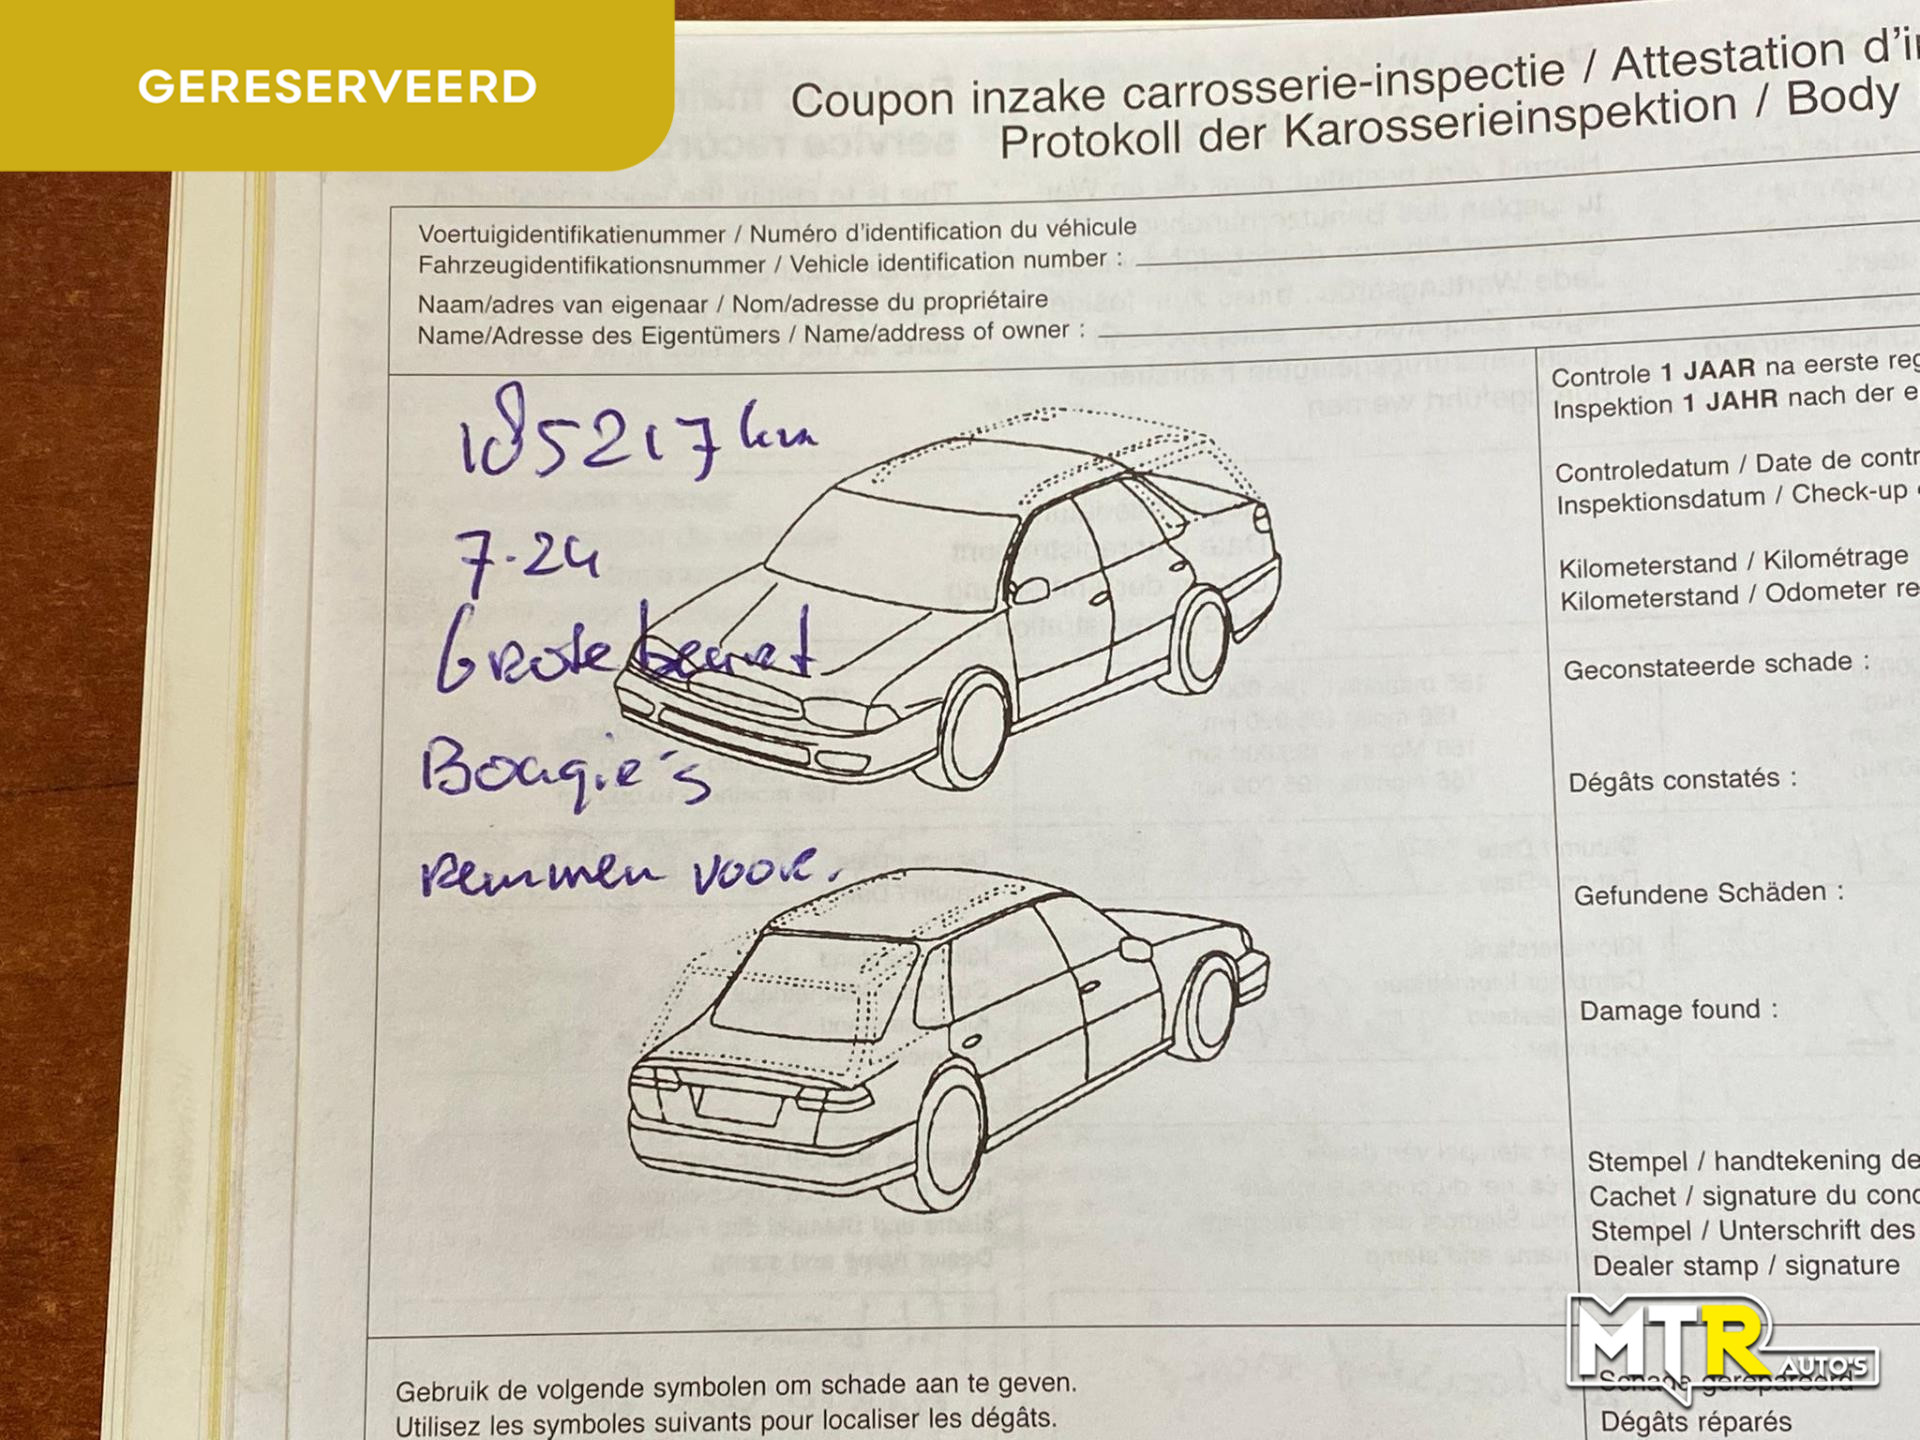 GERESERVEERD
Coupon inzake carrosserie-inspectie / Attestation d'i
Protokoll der Karosserieinspektion / Body
Voertuigidentifikatienummer / Numéro d'identification du véhicule
Fahrzeugidentifikationsnummer / Vehicle identification number :
Naam/adres van eigenaar / Nom/adresse du propriétaire
Name/Adresse des Eigentümers / Name/address of owner :
185217 km
7-24
Grote beurt
Bougie's
Remmen voor.
Controle 1 JAAR na eerste reg
Inspektion 1 JAHR nach der e
Controledatum / Date de contr
Inspektionsdatum / Check-up
Kilometerstand / Kilométrage
Kilometerstand / Odometer re
Geconstateerde schade :
Dégâts constatés :
Gefundene Schäden :
Damage found :
Stempel / handtekening de
Cachet / signature du conc
Stempel / Unterschrift des
Dealer stamp / signature
MTR AUTO'S
Gebruik de volgende symbolen om schade aan te geven.
Utilisez les symboles suivants pour localiser les dégâts.
Schade gerepareerd
Dégâts réparés